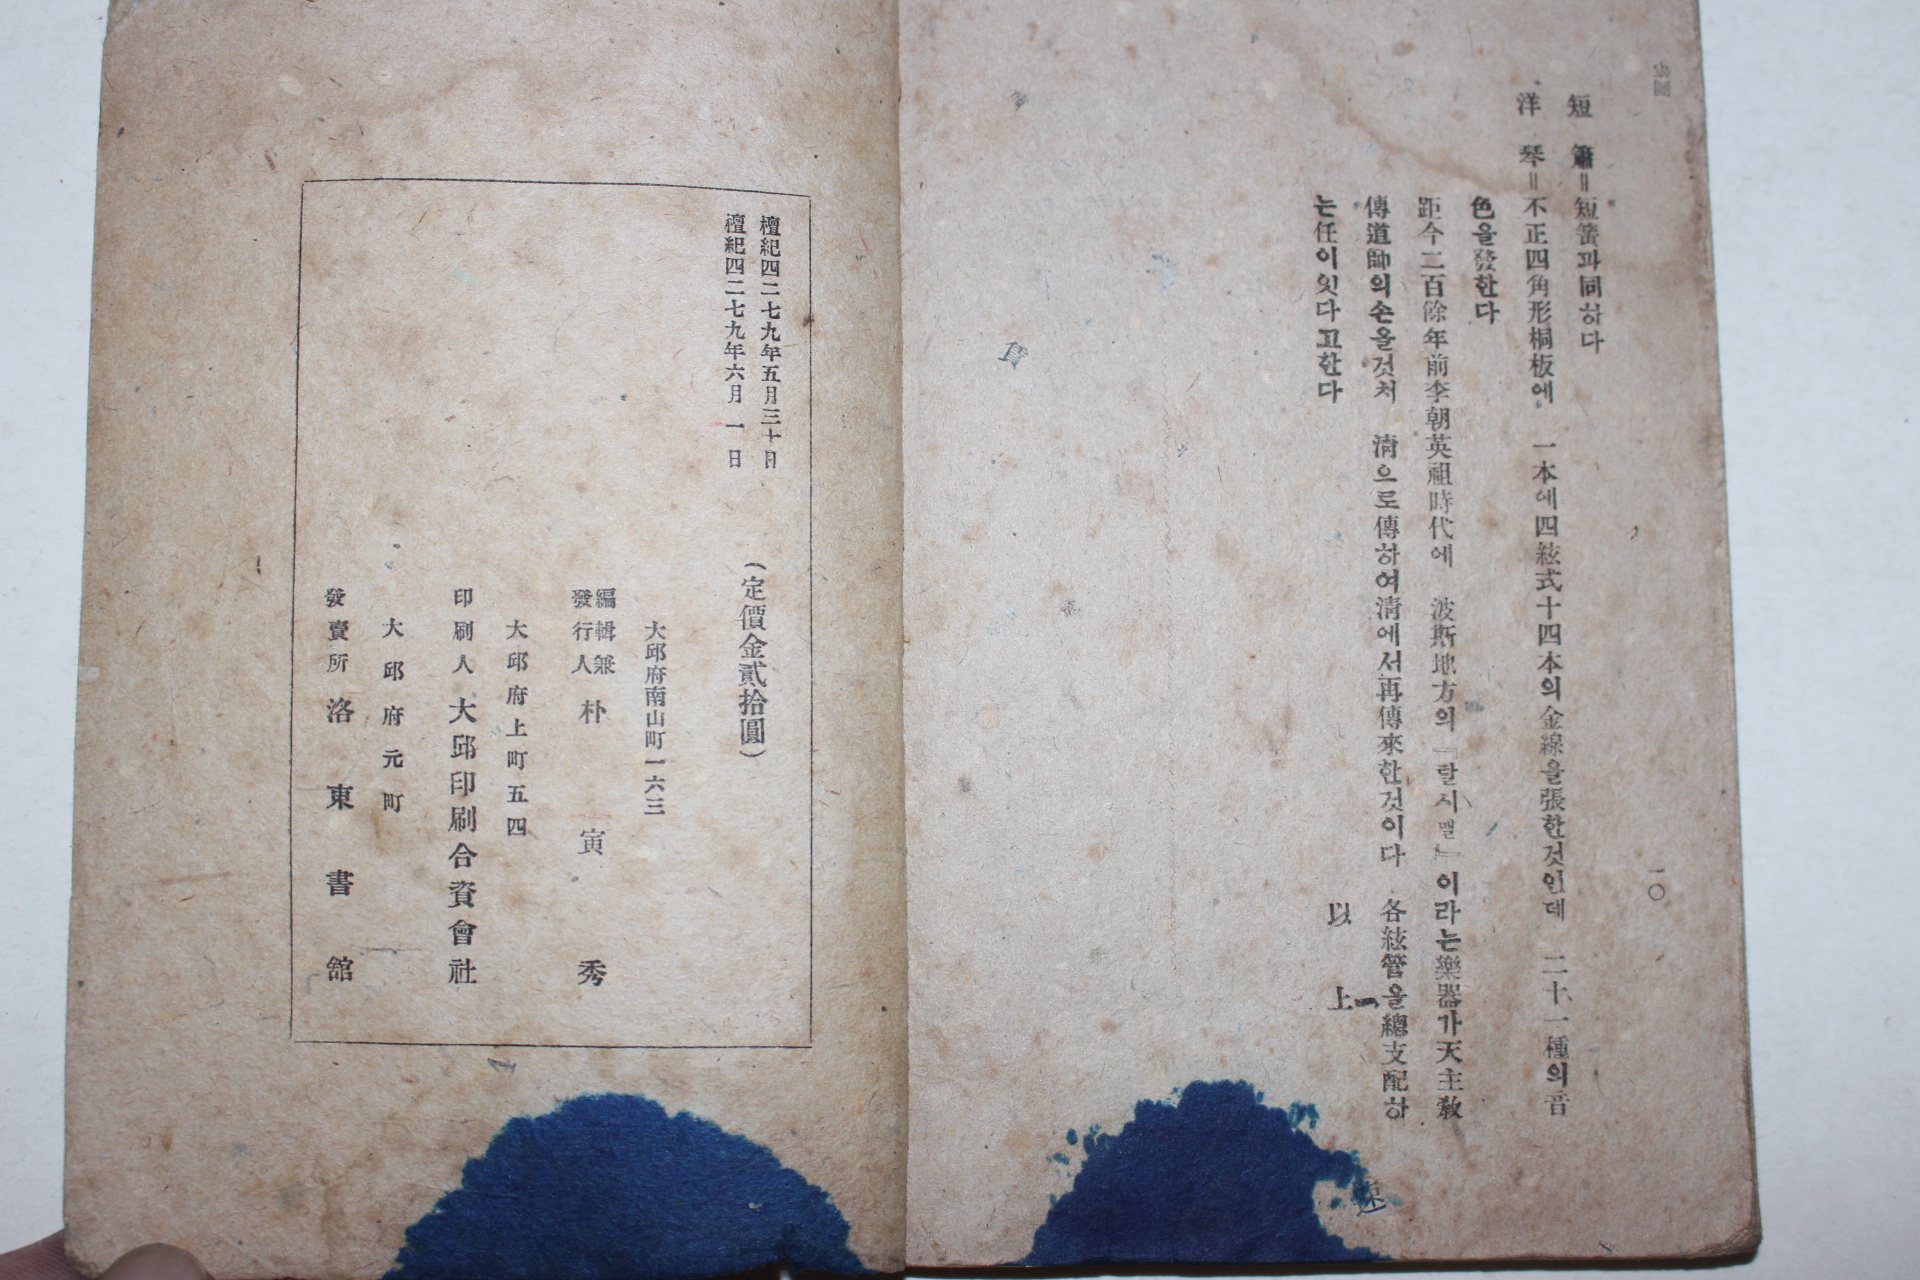 短簫=短簧과同하다
洋琴=不正四角形桐板에 一本에四絃式十四本의金線을張한것인데 二十一種의音
色을發한다
距今二百餘年前李朝英祖時代에 波斯地方의『탈시멜』이라는樂器가天主敎
傳道師의손을것처 淸으로傳하여淸에서再傳來한것이다 各絃管을總支配하
는任이잇다고한다
以上
一〇
檀紀四二七九年五月三十日
檀紀四二七九年六月一日
(定價金貳拾圓)
大邱府南山町一六三
編輯兼
發行人 朴寅秀
大邱府上町五四
印刷人 大邱印刷合資會社
大邱府元町
發賣所 洛東書館